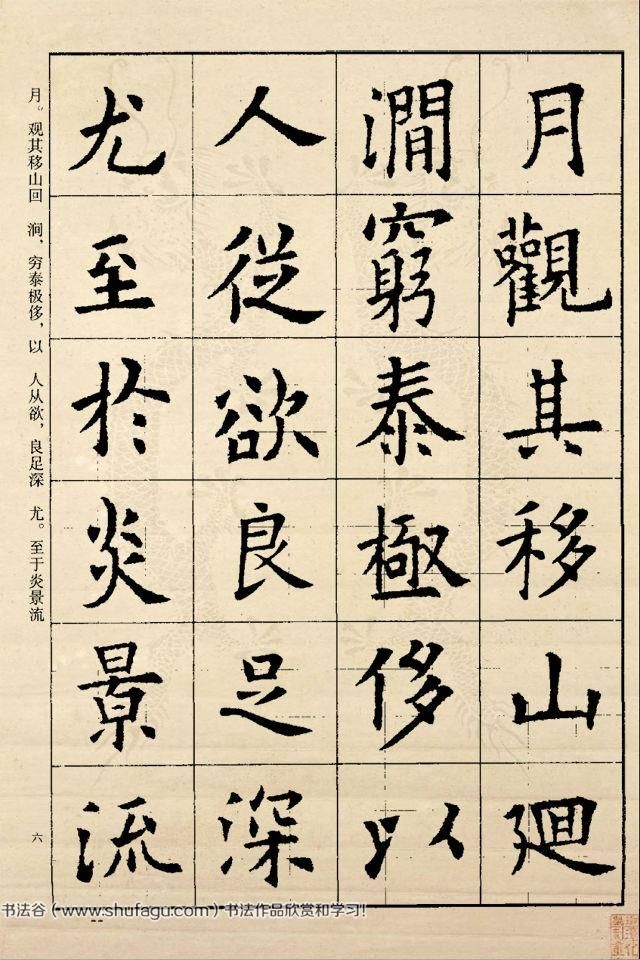 月觀其移山廻
澗窮泰極侈以
人從欲良足深
尤至於炎景流
月。观其移山回 涧，穷泰极侈，以 人从欲，良足深 尤。至于炎景流
六
书法谷（www.shufagu.com）书法作品欣赏和学习！